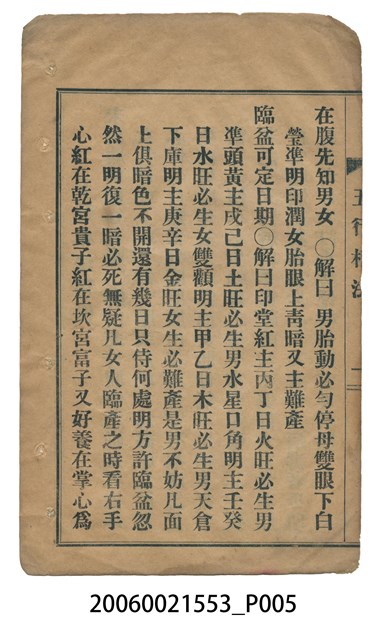 在腹先知男女　〇解曰　男胎動必勻停母雙眼下白
瑩準明印潤女胎眼上靑暗又主難產
臨盆可定日期〇解曰印堂紅主丙丁日火旺必生男
準頭黃主戌己日土旺必生男水星口角明主壬癸
日水旺必生女雙顴明主甲乙日木旺必生男天倉
下庫明主庚辛日金旺女生必難產是男不妨凡面
上俱暗色不開還有幾日只侍何處明方許臨盆忽
然一明復一暗必死無疑凡女人臨產之時看右手
心紅在乾宮貴子紅在坎宮富子又好養在掌心爲
20060021553_P005